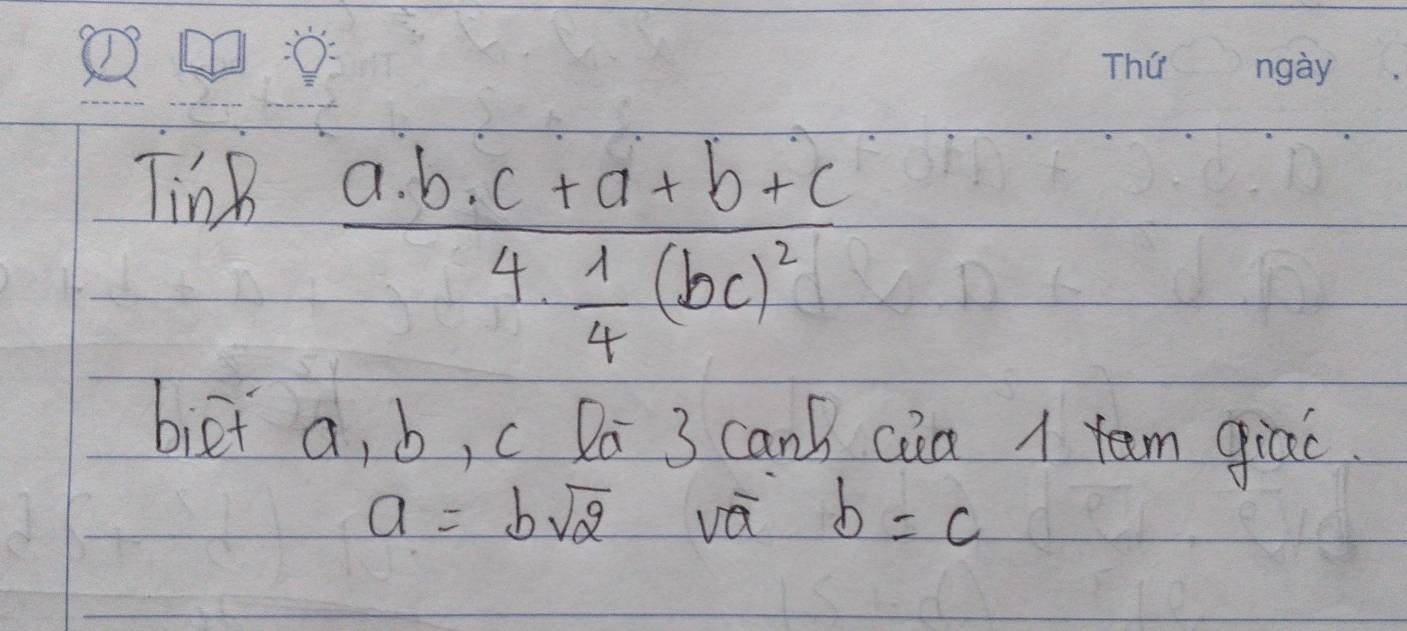 Thứ ngày .
Tính \frac{a.b.c + a + b + c}{4 . \frac{1}{4} (bc)^2}
biết a, b, c là 3 cạnh của 1 tam giác.
a = b√2 và b = c